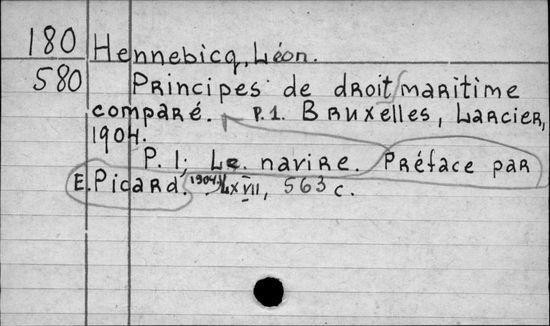 180 Hennebicq, Léon.
580 Principes de droit maritime
comparé. P.1. Bruxelles, Larcier,
1904.
P. 1; Le navire. Préface par
E. Picard. 1904. LXVII, 563 с.